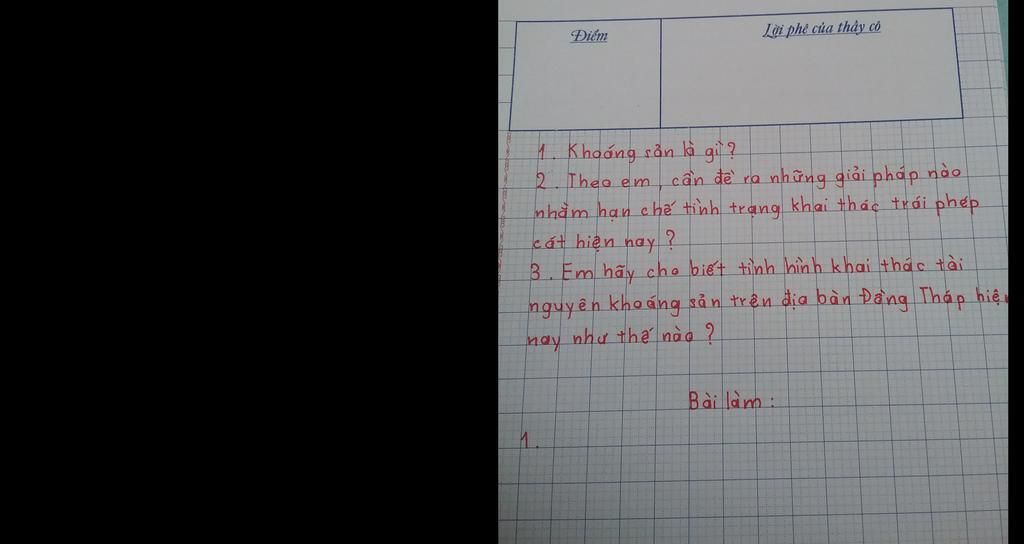 Điểm
Lời phê của thầy cô
1. Khoáng sản là gì?
2. Theo em, cần đề ra những giải pháp nào
nhằm hạn chế tình trạng khai thác trái phép
cát hiện nay?
3. Em hãy cho biết tình hình khai thác tài
nguyên khoáng sản trên địa bàn Đồng Tháp hiện
nay như thế nào?
Bài làm:
1.